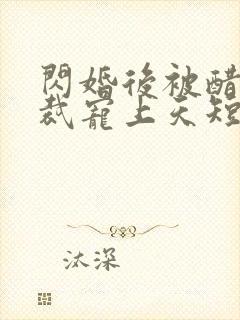 閃婚後被醋
裁寵上天短
汰深